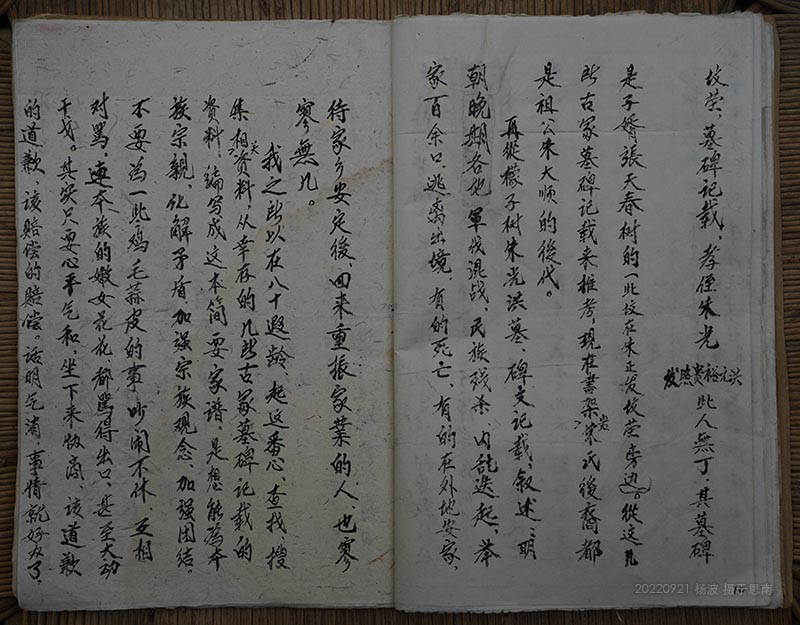 坟茔，墓碑记载，孝侄朱光
洪元裕贵照发
此人無丁，其墓碑
是子婿張天春树的一些坟在朱正发坟茔旁边。從这几
所古冢墓碑记载来推考，現在書架岩朱氏後裔都
是祖公朱大顺的後代。
再從檬子树朱光洪墓，碑文记载，叙述：明
朝晚期各地軍伐混战，民族残杀，内乱迭起，举
家百余口，逃离出境，有的死亡，有的在外地安家，
待家乡安定後，回来重振家業的人，也寥
寥無几。
我之所以在八十遐龄，起这番心，查找，搜
集相关资料，从幸存的几些古冢墓碑记载的
资料，编写成这本简要家谱，是想能為本
族宗親，化解矛盾加强宗族观念，加强团结。
不要為一些鸡毛蒜皮的事，吵闹不休，互相
对罵，連本族的嫩女花花，都罵得出口，甚至大动
干戈。其实只要心平气和，坐下来协商，该道歉
的道歉，该賠偿的賠偿。话明气消，事情就好办了，
20220921 杨波 摄于思南